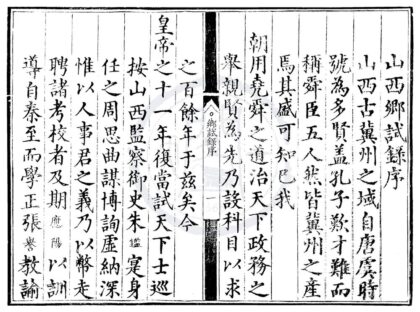 山西鄉試錄序
山西古冀州之域自唐虞時
號為多賢盖孔子歎才難而
稱舜臣五人然皆冀州之產
焉其盛可知已我
朝用堯舜之道治天下政務之
舉親賢為先乃設科目以求
鄉試錄序
一
之百餘年于兹矣今
皇帝之十一年復當試天下士巡
按山西監察御史朱鑑寔身
任之周思曲謀博詢虛納深
惟以人事君之義乃以幣走
聘諸考校者及期應陽以訓
導自秦至而學正張譽教諭